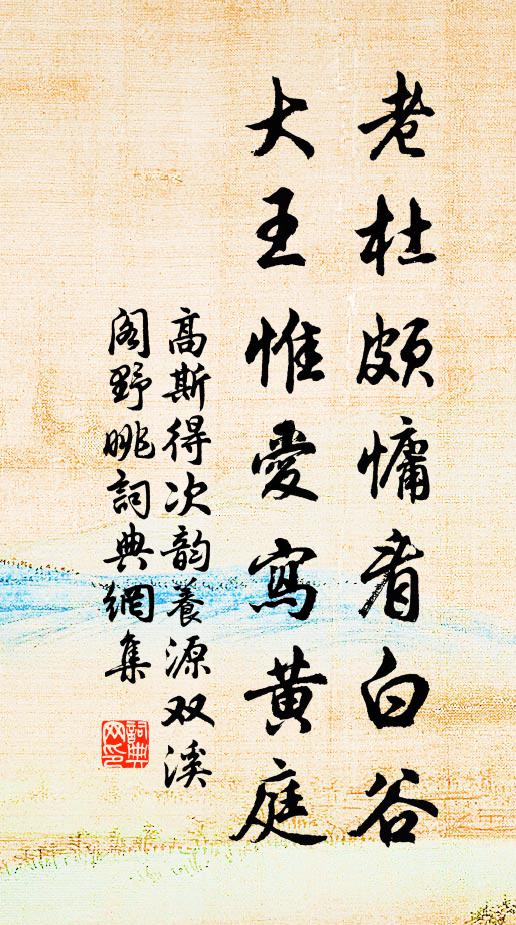 老杜頗慵看白谷
大王惟愛寫黄庭
高斯得次韵養源双溪
阁野眺詞典網集
詞典网印